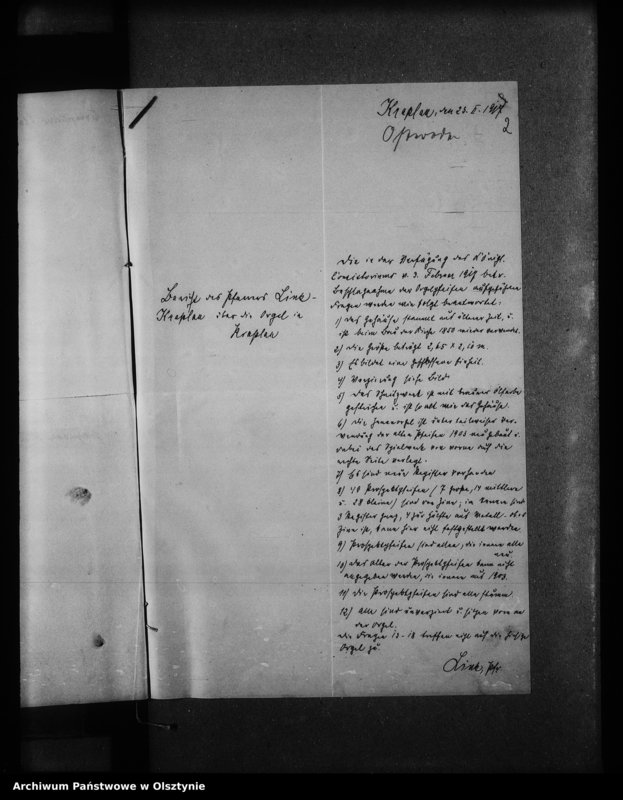 Kraplau, den 23. II. 1917
2
Osterode
Bericht des Pfarrers Link-
Kraplau über die Orgel in
Kraplau
Die in der Verfügung des Königl.
Consistoriums v. 3. Februar 1917 betr.
Beschlagnahme der Orgelpfeifen aufgeführten
Fragen werden wie folgt beantwortet:
1) Das Gehäuse stammt aus älterer Zeit, u.
ist beim Bau der Kirche 1850 wieder verwendet.
2) Die Größe beträgt 2,65 x 2,10 m.
3) Es bildet eine geschlossene Einheit.
4) Verzierung siehe Bild
5) Das Schnitzwerk ist mit brauner Ölfarbe
gestrichen u. ist so alt wie das Gehäuse.
6) Die Innenorgel ist unter teilweiser Ver-
wendung der alten Pfeifen 1903 neugebaut u.
dabei das Spielwerk von vorne auf die
rechte Seite verlegt.
7) Es sind neun Register vorhanden
8) Prospektpfeifen (7 große, 14 mittlere
u. 28 kleine) sind von Zinn; im Innern sind
3 Register ganz, 4 zur Hälfte aus Metall. Ob es
Zinn ist, kann hier nicht festgestellt werden
9) Prospektpfeifen sind alt, die innern alle
neu
10) Das Alter der Prospektpfeifen kann nicht
angegeben werden, die innern aus 1903.
11) Die Prospektpfeifen sind alle stumm.
12) Alle sind unverziert u. stehen vorn an
der Orgel.
Die Fragen 13-18 treffen nicht auf die hiesige
Orgel zu
Link, Pfr
Archiwum Państwowe w Olsztynie